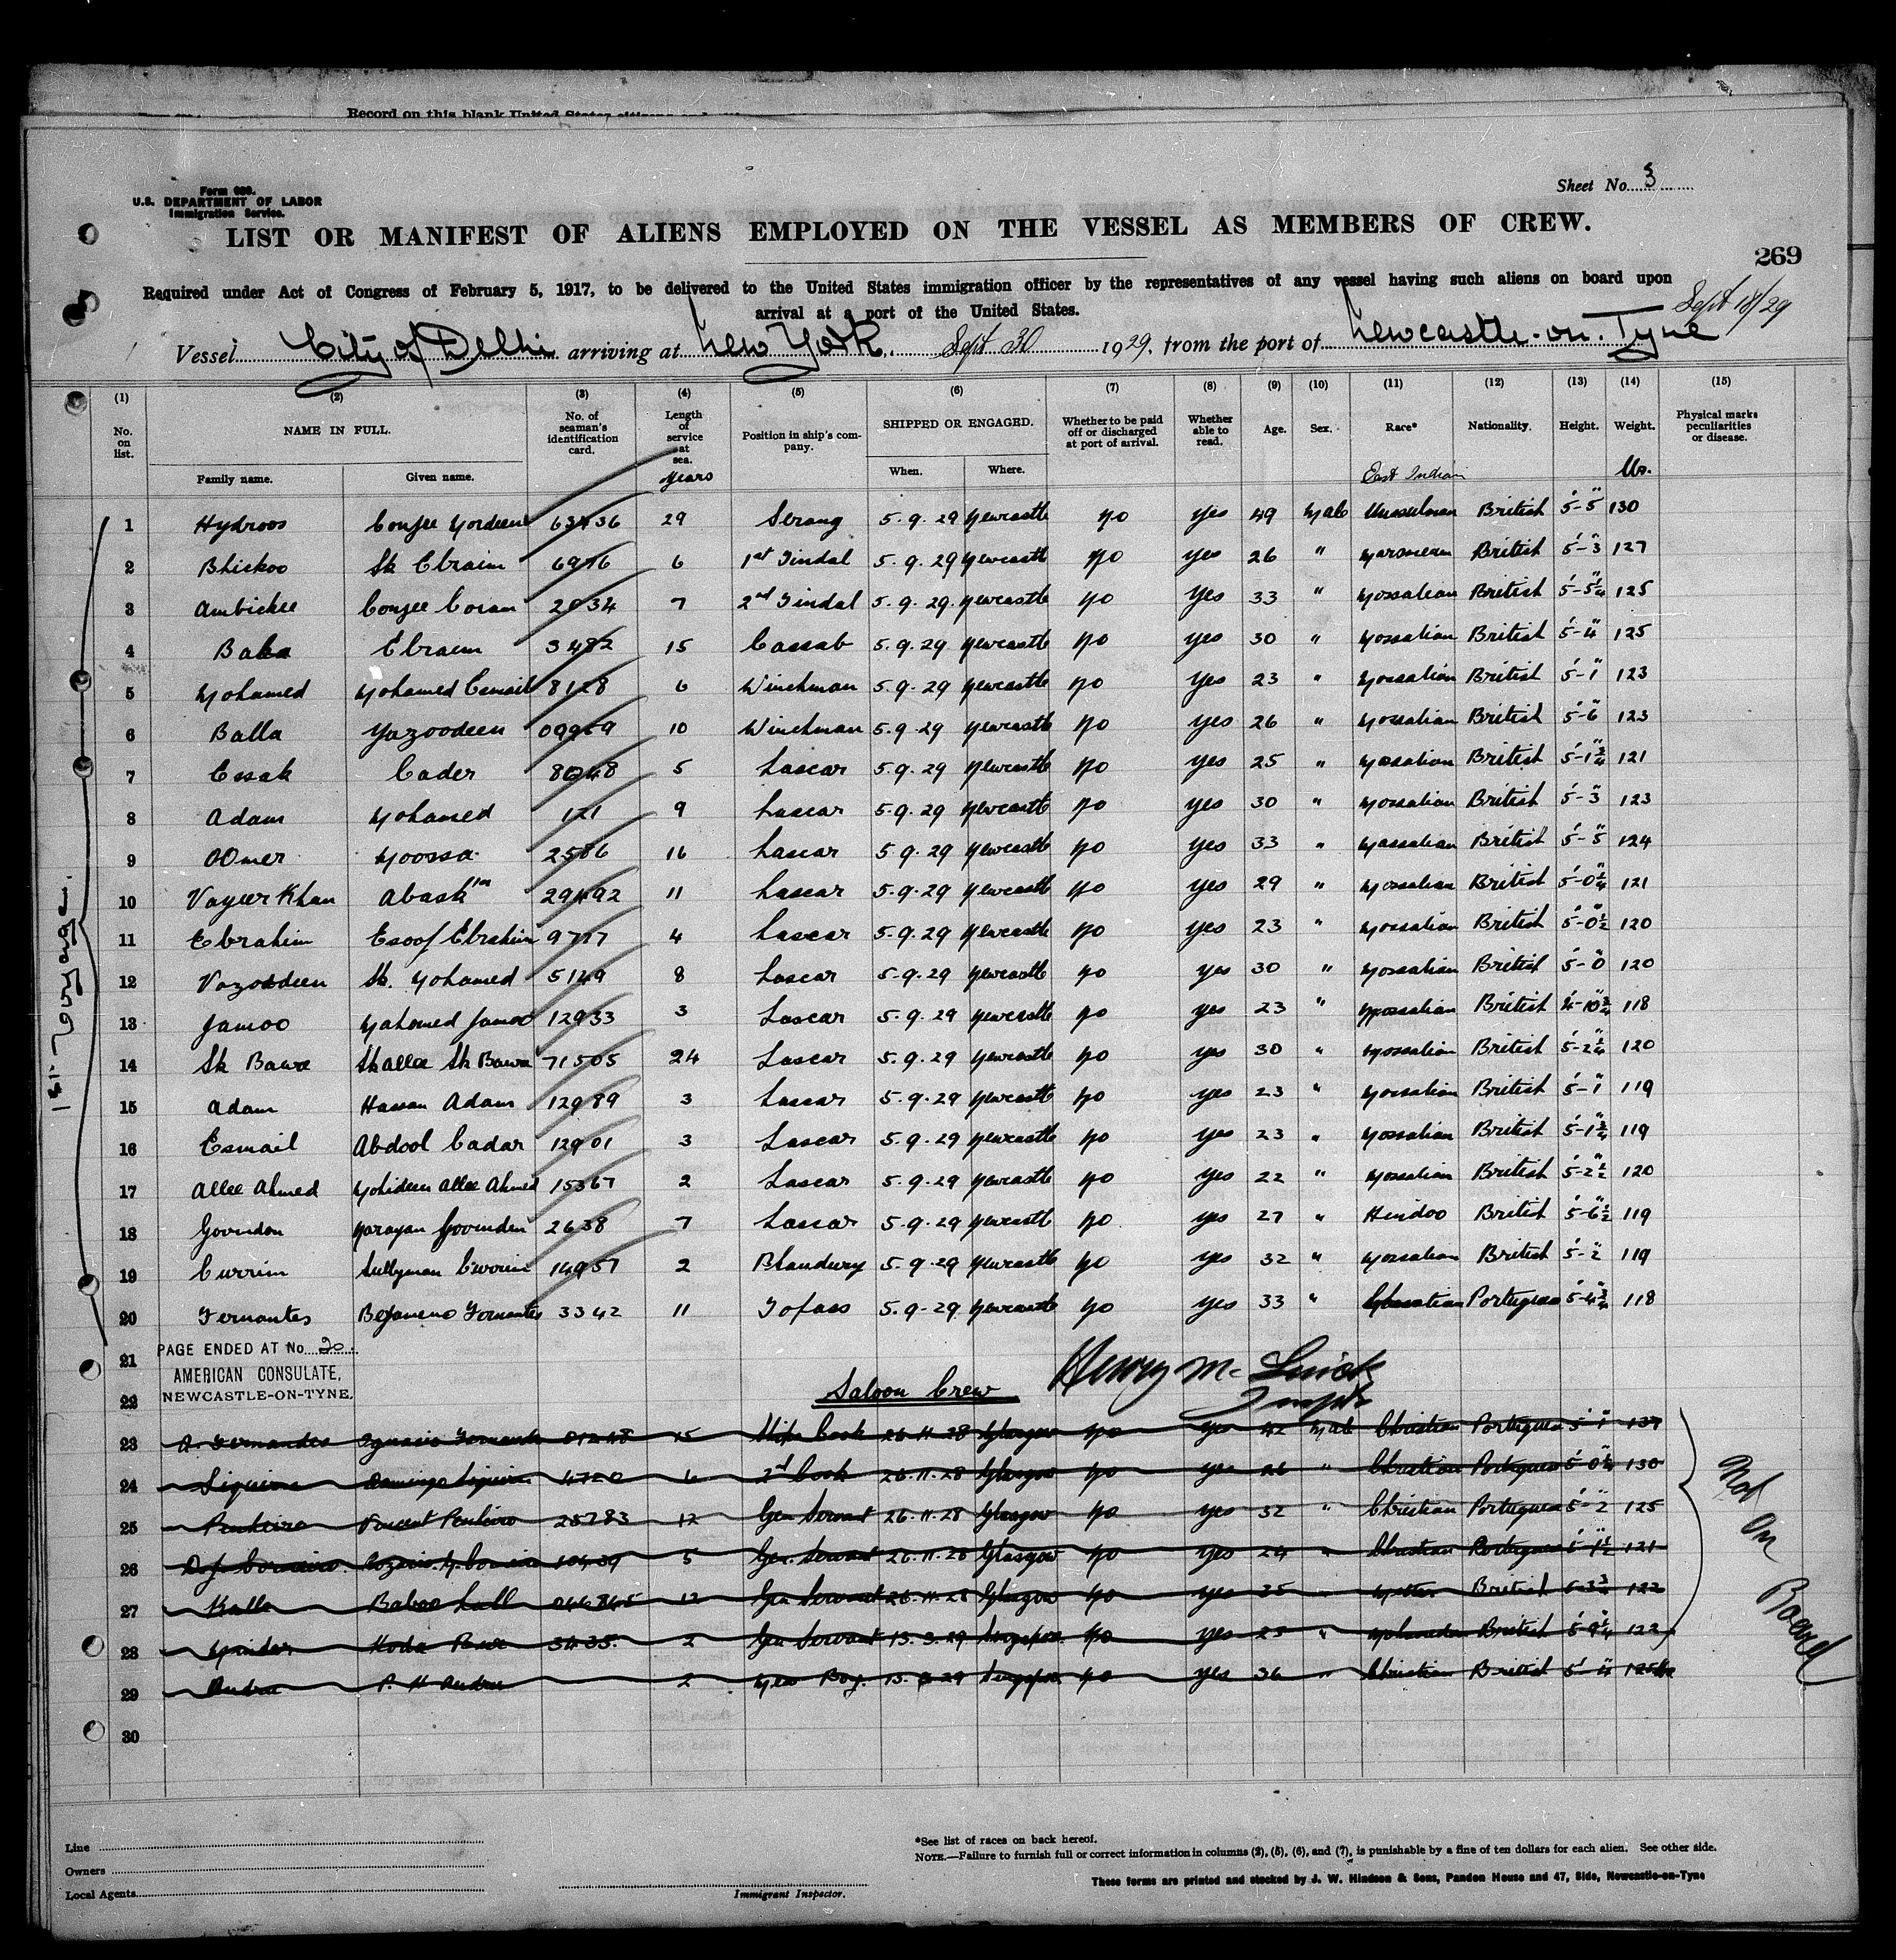 Record on this blank United States citizens and
Sheet No. 3
Form 689.
U.S. DEPARTMENT OF LABOR
Immigration Service.
LIST OR MANIFEST OF ALIENS EMPLOYED ON THE VESSEL AS MEMBERS OF CREW.
269
Required under Act of Congress of February 5, 1917, to be delivered to the United States immigration officer by the representatives of any vessel having such aliens on board upon
arrival at a port of the United States.
Sept 18/29
Vessel City of Delhi arriving at New York, Sept 30 1929, from the port of Newcastle-on-Tyne
(1) (2) (3) (4) (5) (6) (7) (8) (9) (10) (11) (12) (13) (14) (15)
No. on list. NAME IN FULL. Family name. Given name. No. of seaman's identification card. Length of service at sea. years Position in ship's company. SHIPPED OR ENGAGED. When. Where. Whether to be paid off or discharged at port of arrival. Whether able to read. Age. Sex. Race* Nationality. Height. Weight. Physical marks peculiarities or disease.
East Indian
1 Hydroos Conjee 63436 29 Serang 5.9.29 Newcastle No Yes 49 Male Mussulman British 5'-5" 130
2 Bhickoo Sk Ebraim 6976 6 1st Tindal 5.9.29 Newcastle No Yes 26 " British 5'-3" 127
3 Ambickee Conjee 2034 7 2nd Tindal 5.9.29 Newcastle No Yes 33 " British 125
4 Baba Ebraim 3482 15 Cassab 5.9.29 Newcastle No Yes 30 " British 5'-4" 125
5 Mohamed Mohamed Esmail 8128 6 Winchman 5.9.29 Newcastle No Yes 23 " British 5'-1" 123
6 Balla 10 Winchman 5.9.29 Newcastle No Yes 26 " British 5'-6" 123
7 Essak Cader 8048 5 Lascar 5.9.29 Newcastle No Yes 25 " British 121
8 Adam Mohamed 121 9 Lascar 5.9.29 Newcastle No Yes 30 " British 5'-3" 123
9 Oomer Moossa 2586 16 Lascar 5.9.29 Newcastle No Yes 33 " British 5'-5" 124
10 Vayeer Khan Abask 29492 11 Lascar 5.9.29 Newcastle No Yes 29 " British 121
11 Ebrahim Esoof Ebrahim 9777 4 Lascar 5.9.29 Newcastle No Yes 23 " British 5'-0½" 120
12 Sk. Mohamed 5149 8 Lascar 5.9.29 Newcastle No Yes 30 " British 5'-0" 120
13 Jamoo Mahomed Jamoo 12933 3 Lascar 5.9.29 Newcastle No Yes 23 " British 118
14 Sk Bawa Sk Allee Sk Bawa 71505 24 Lascar 5.9.29 Newcastle No Yes 30 " British 120
15 Adam Hassan Adam 12989 3 Lascar 5.9.29 Newcastle No Yes 23 " British 5'-1" 119
16 Esmail Abdool Cadar 12901 3 Lascar 5.9.29 Newcastle No Yes 23 " British 119
17 Allee Ahmed Mohideen Allee Ahmed 15367 2 Lascar 5.9.29 Newcastle No Yes 22 " British 5'-2½" 120
18 Govindan Narayan Govinden 2638 7 Lascar 5.9.29 Newcastle No Yes 27 " Hindoo British 5'-6½" 119
19 Currim Sullyman Currim 14957 2 Bhandary 5.9.29 Newcastle No Yes 32 " British 5'-2" 119
20 Fernantes Fernantes 3342 11 Topass 5.9.29 Newcastle No Yes 33 " Christian Portuguese 118
1st Voyage.
21 PAGE ENDED AT No. 20.
AMERICAN CONSULATE,
22 NEWCASTLE-ON-TYNE.
Saloon Crew
Henry Mc
23 A. Fernandes Ignacio Fernandes 01248 15 Ship's Cook 26.11.28 Glasgow No Yes 42 Male Christian Portuguese 5'-1" 137
24 Siqueira Domingo Siqueira 4720 6 2nd Cook 26.11.28 Glasgow No Yes 26 " Christian Portuguese 130
25 Penheiro Vincent Penheiro 25783 12 Gen Servant 26.11.28 Glasgow No Yes 32 " Christian Portuguese 5'-2" 125
26 10439 5 Gen. Servant 26.11.28 Glasgow No Yes 24 " Christian Portuguese 5'-1½" 121
27 Kalla Baboo Lall 12 Gen Servant 26.11.28 Glasgow No Yes 35 " British 122
28 3435 2 Gen Servant 13.3.29 No Yes 25 " British 122
29 Andrew P. H Andrew 2 Mess Boy. 13.3.29 No Yes 36 " Christian British 5'-4" 125
30
Not On Board
Line
Owners
Local Agents
Immigrant Inspector.
*See list of races on back hereof.
NOTE.—Failure to furnish full or correct information in columns (2), (5), (6), and (7), is punishable by a fine of ten dollars for each alien. See other side.
These forms are printed and stocked by J. W. Hindson & Sons, Pandon House and 47, Side, Newcastle-on-Tyne